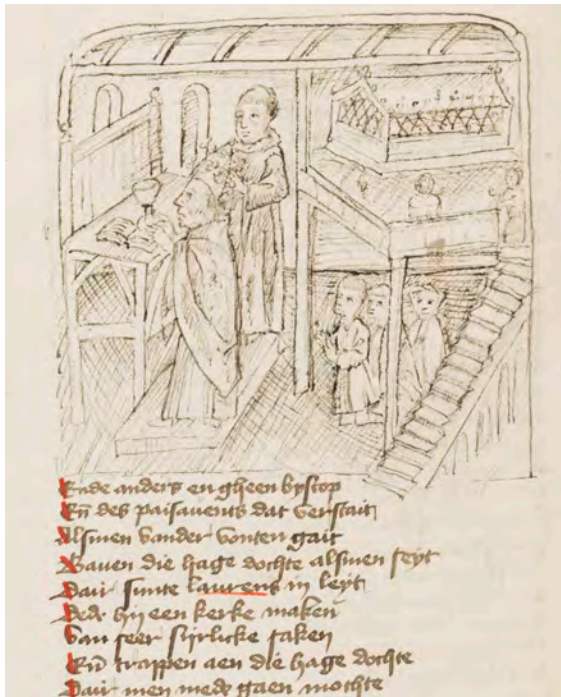 Ende anders en gheen bysscop
En̄ des paisavents dat verstait
Alsmen vander vonten gait
Bauen die hage dochte alsmen seyt
Dair sunte laurens in leyt
Dede hij een kerke maken
Van seer sijrlicke saken
En̄ trappen aen die hage dochte
Dair men mede gaen mochte